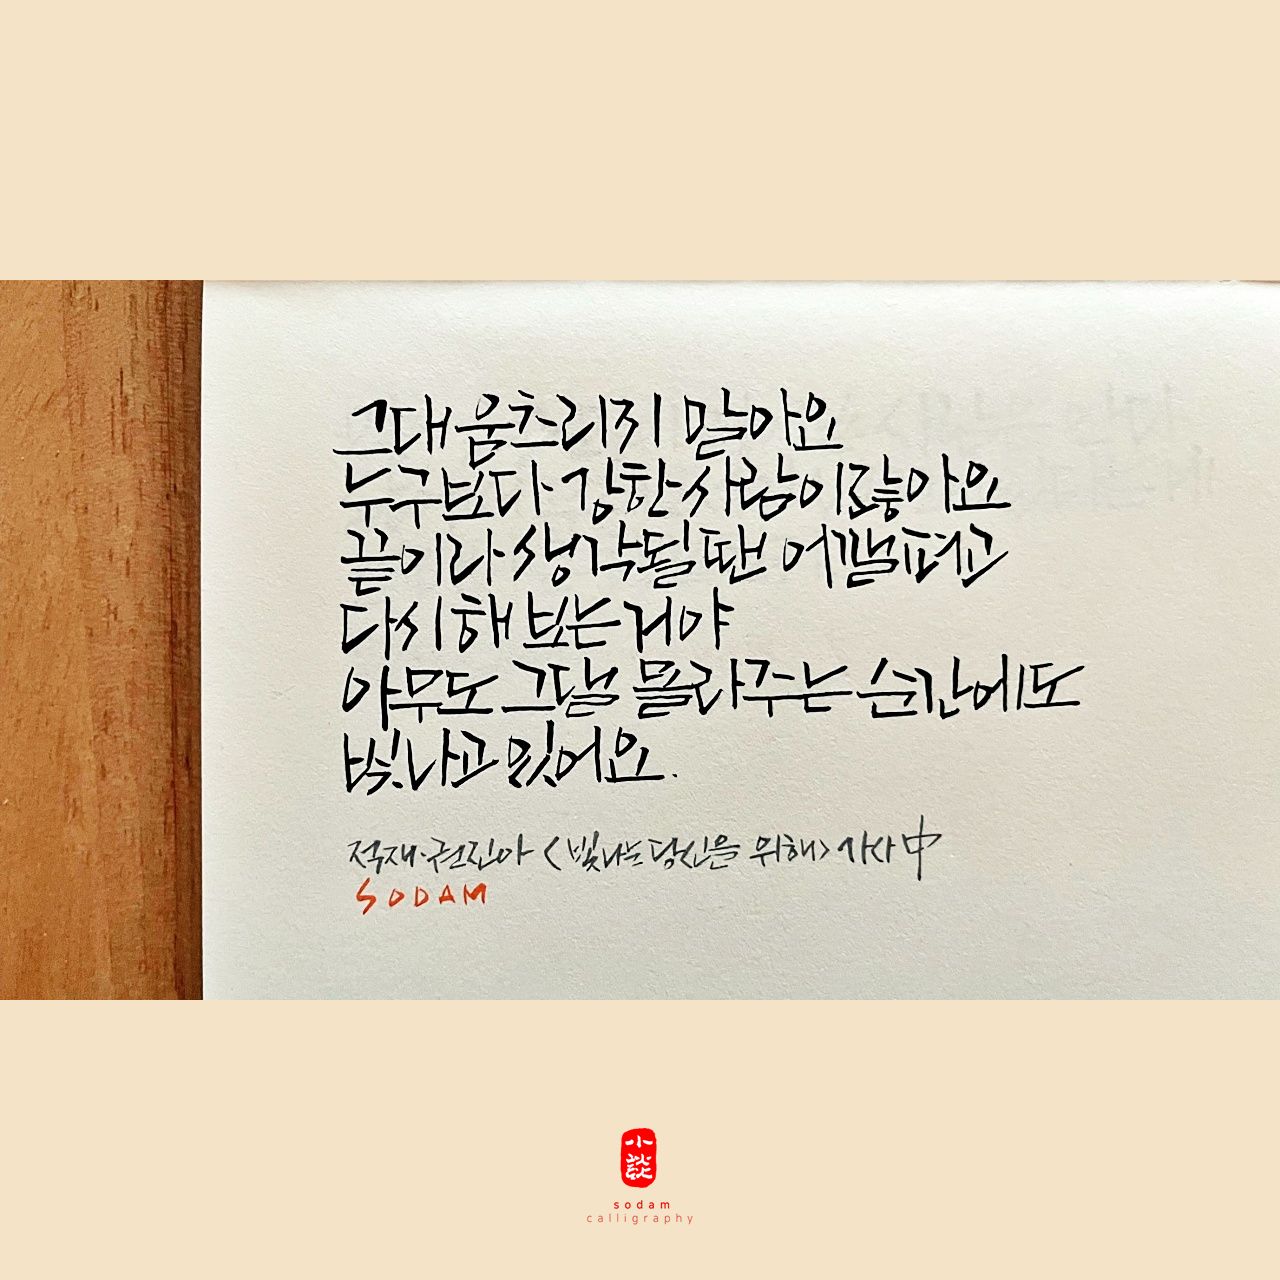 그대 움츠리지 말아요
누구보다 강한 사람이잖아요
끝이라 생각될 땐 어깰 펴고
다시 해 보는 거야
아무도 그댈 몰라주는 순간에도
빛나고 있어요.
적재·권진아 <빛나는 당신을 위해> 가사 中
SODAM
小談
sodam
calligraphy